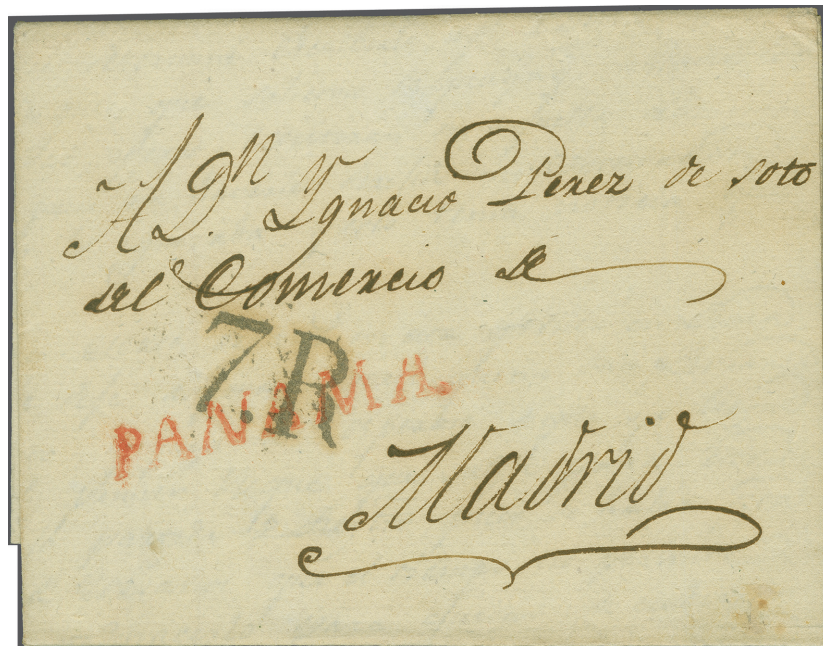 A Dn. Ygnacio Perez de soto
del Comercio de
7.R
PANAMA
Madrid